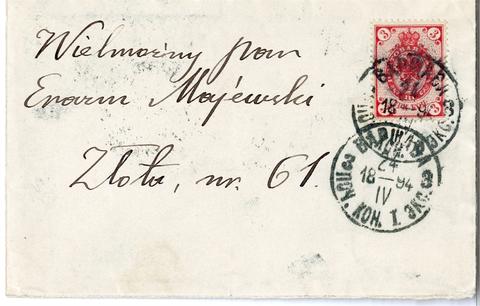 Wielmożny pan
Erazm Majewski
Złota, nr. 61.
3 3
3 3
ВАРШАВА
24
18—94
IV
3 ЭКС.
ПОЧ. КОН. I.